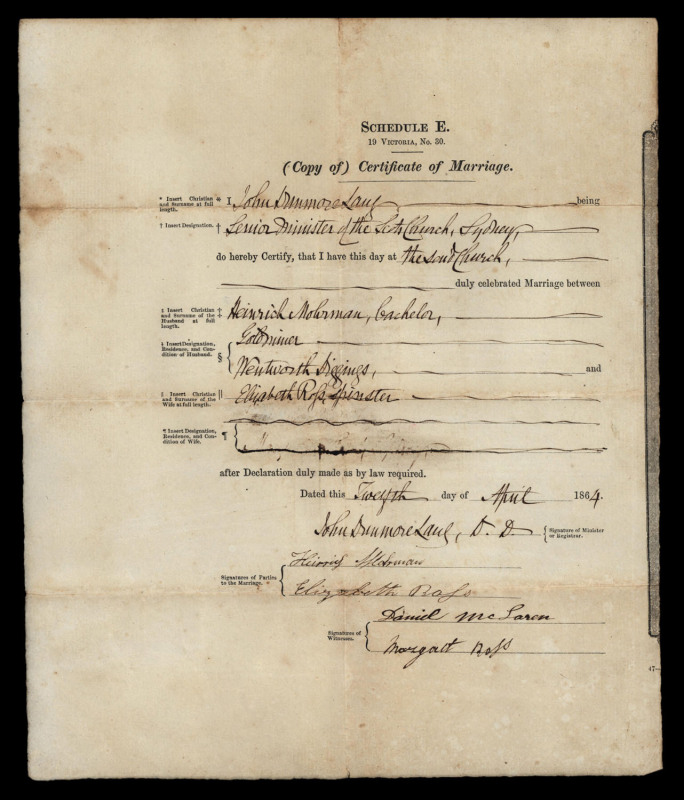 SCHEDULE E.
19 VICTORIA, No. 30.
(Copy of) Certificate of Marriage.
* Insert Christian and Surname at full length.
* I John Dunmore Lang being
† Insert Designation.
† Senior Minister of the Scots Church, Sydney,
do hereby Certify, that I have this day at the said Church,
duly celebrated Marriage between
‡ Insert Christian and Surname of the Husband at full length.
‡ Heinrich Mohrman, bachelor,
§ Insert Designation, Residence, and Condition of Husband.
§ Goldminer
Wentworth Diggings, and
|| Insert Christian and Surname of the Wife at full length.
|| Elizabeth Ross, Spinster
¶ Insert Designation, Residence, and Condition of Wife.
¶
after Declaration duly made as by law required.
Dated this Twelfth day of April 1864.
John Dunmore Lang, D. D.
Signature of Minister or Registrar.
Signatures of Parties to the Marriage.
Heinrich Mohrman
Elizabeth Ross
Signatures of Witnesses.
Daniel McLaren
Margaret Ross
47—